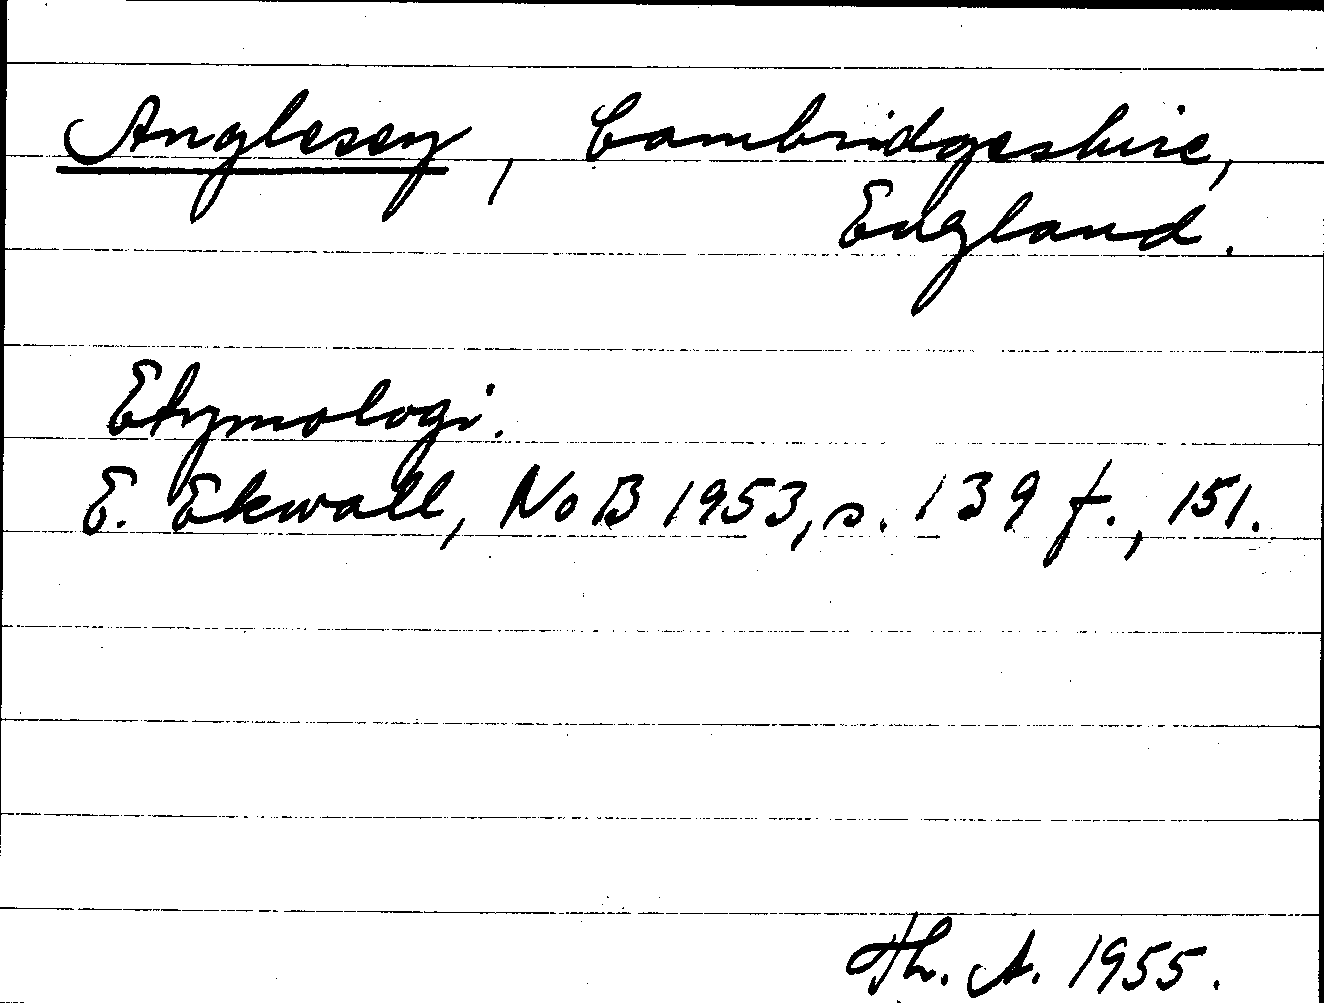 Anglesey, Cambridgeshire,
England.
Etymologi.
E. Ekwall, NoB 1953, s. 139 f., 151.
Th. A. 1955.